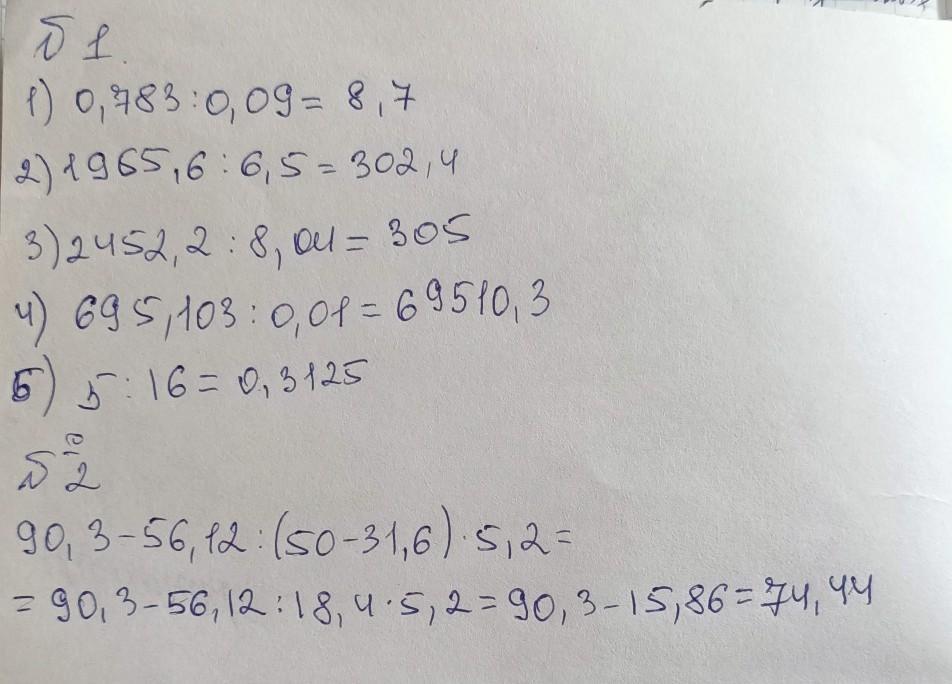 № 1.
1) 0,783 : 0,09 = 8,7
2) 1965,6 : 6,5 = 302,4
3) 2452,2 : 8,04 = 305
4) 695,103 : 0,01 = 69510,3
5) 5 : 16 = 0,3125
№ 2
90,3 - 56,12 : (50 - 31,6) · 5,2 =
= 90,3 - 56,12 : 18,4 · 5,2 = 90,3 - 15,86 = 74,44